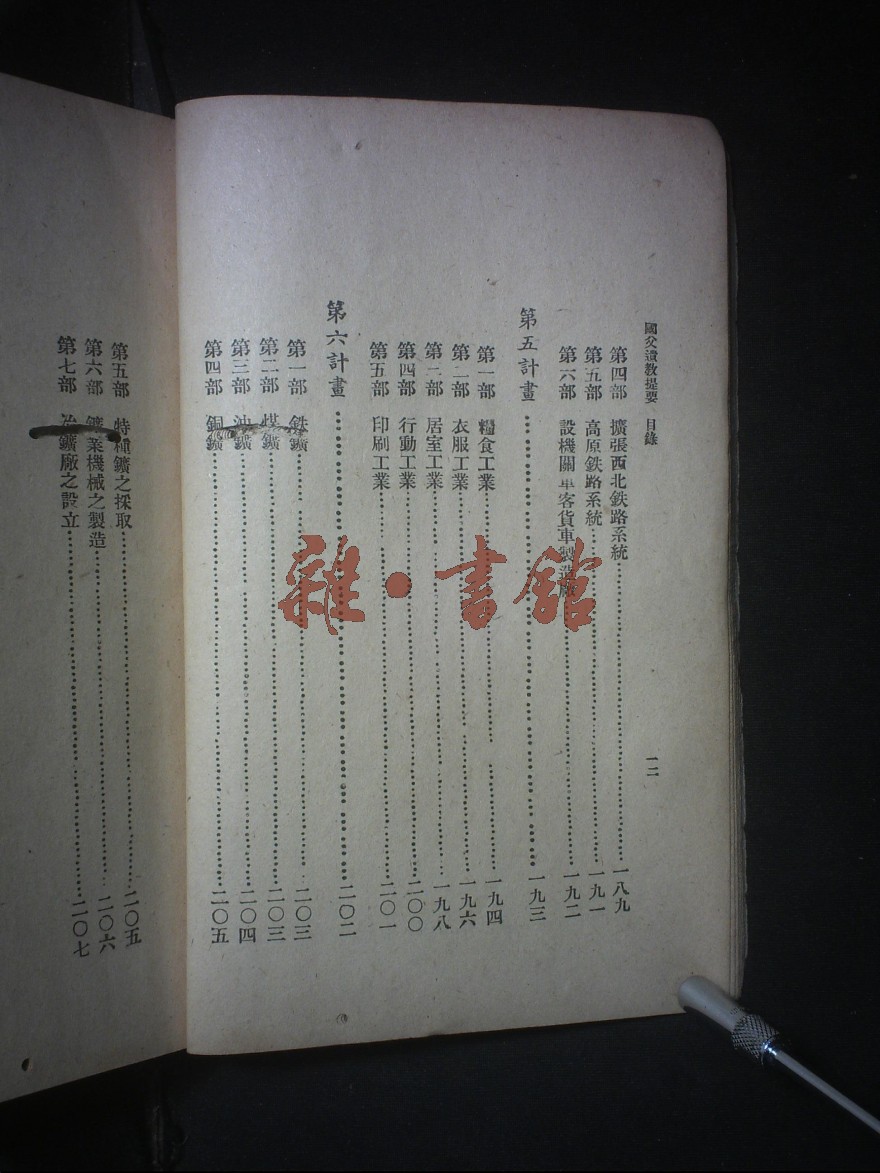 國父遺教提要 目錄
一二
第四部 擴張西北鉄路系統 一八九
第五部 高原鉄路系統 一九一
第六部 設機關車客貨車製造廠 一九二
第五計畫 一九三
第一部 糧食工業 一九四
第二部 衣服工業 一九六
第三部 居室工業 一九八
第四部 行動工業 二〇〇
第五部 印刷工業 二〇一
第六計畫 二〇二
第一部 鉄鑛 二〇三
第二部 煤鑛 二〇三
第三部 油鑛 二〇四
第四部 銅鑛 二〇五
第五部 特種鑛之採取 二〇五
第六部 鑛業機械之製造 二〇六
第七部 冶鑛廠之設立 二〇七
雜·書館